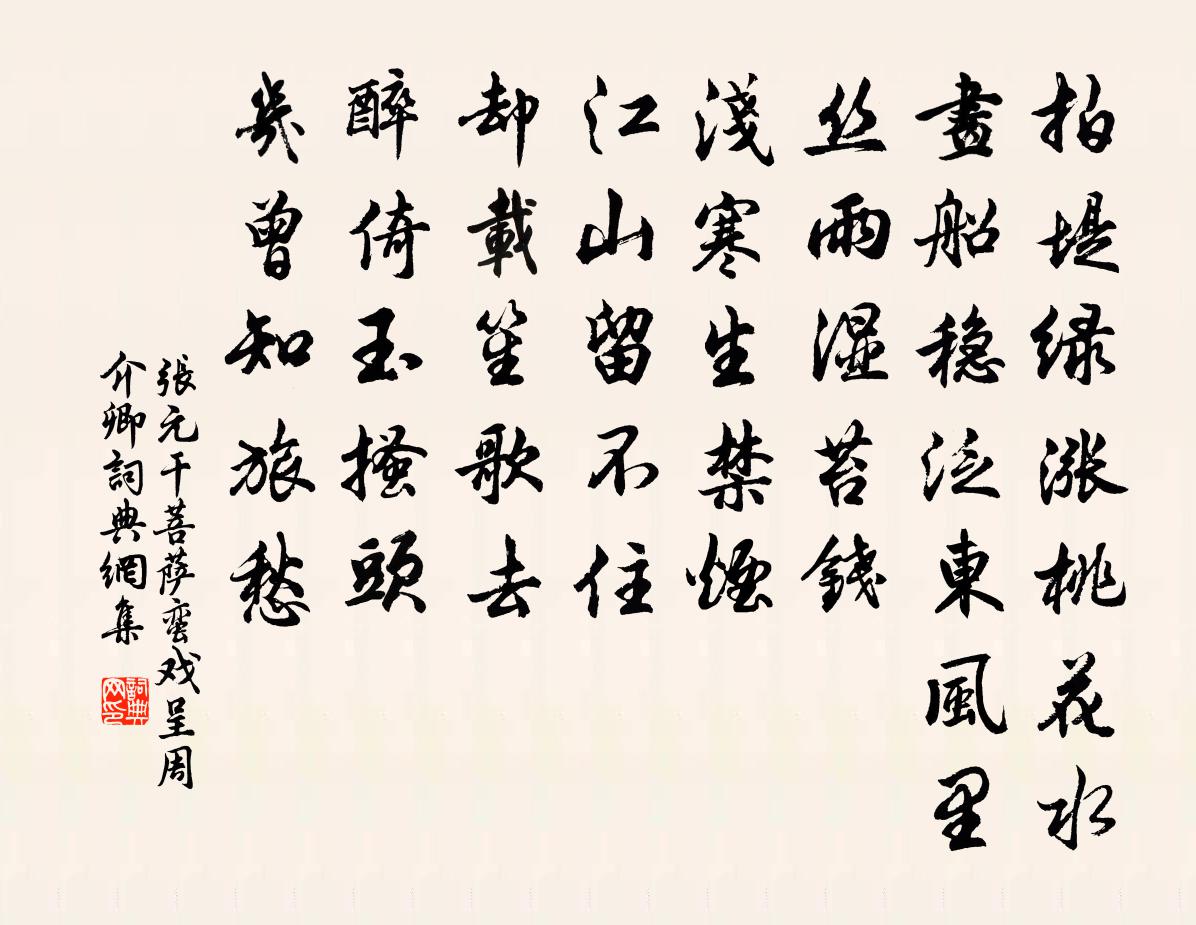 拍堤绿漲桃花水
畫船稳泛東風里
丝雨濕苔錢
淺寒生禁煙
江山留不住
却載笙歌去
醉倚玉搔頭
幾曾知旅愁
張元干菩萨蛮戏呈周
介卿詞典網集
詞典网印